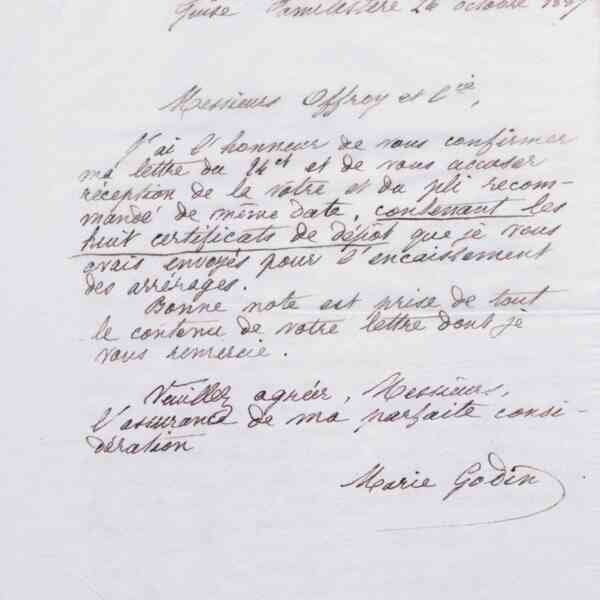 Guise Familistère 26 octobre 1897
Messieurs Offroy et Cie,
J'ai l'honneur de vous confirmer
ma lettre du 24 ct et de vous accuser
réception de la vôtre et du pli recom-
mandé de même date, contenant les
huit certificats de dépôt que je vous
avais envoyés pour l'encaissement
des arrérages.
Bonne note est prise de tout
le contenu de votre lettre dont je
vous remercie.
Veuillez agréer, Messieurs,
l'assurance de ma parfaite consi-
dération
Marie Godin